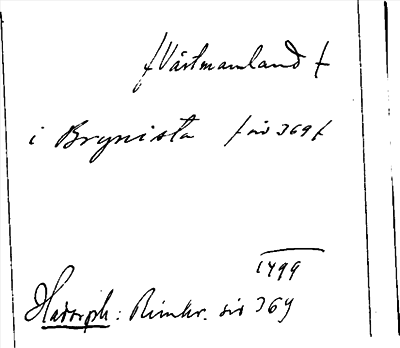 /Västmanland/
i Brynista /sid 369/
1499
Hadorph: Rimkr. sid 369